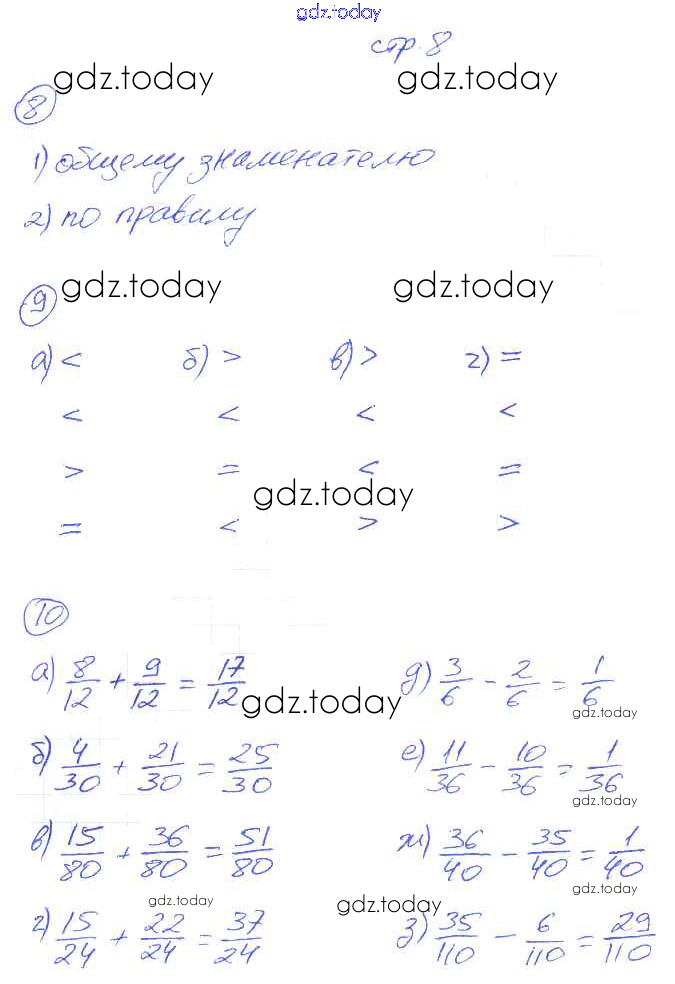 gdz.today
стр. 8
gdz.today gdz.today
8
1) общему знаменателю
2) по правилу
9 gdz.today gdz.today
а) < б) > в) > г) =
< < < <
> = < =
gdz.today
= < > >
10
а) 8/12 + 9/12 = 17/12 д) 3/6 - 2/6 = 1/6
gdz.today gdz.today
б) 4/30 + 21/30 = 25/30 е) 11/36 - 10/36 = 1/36
gdz.today
в) 15/80 + 36/80 = 51/80 ж) 36/40 - 35/40 = 1/40
gdz.today gdz.today gdz.today
г) 15/24 + 22/24 = 37/24 з) 35/110 - 6/110 = 29/110